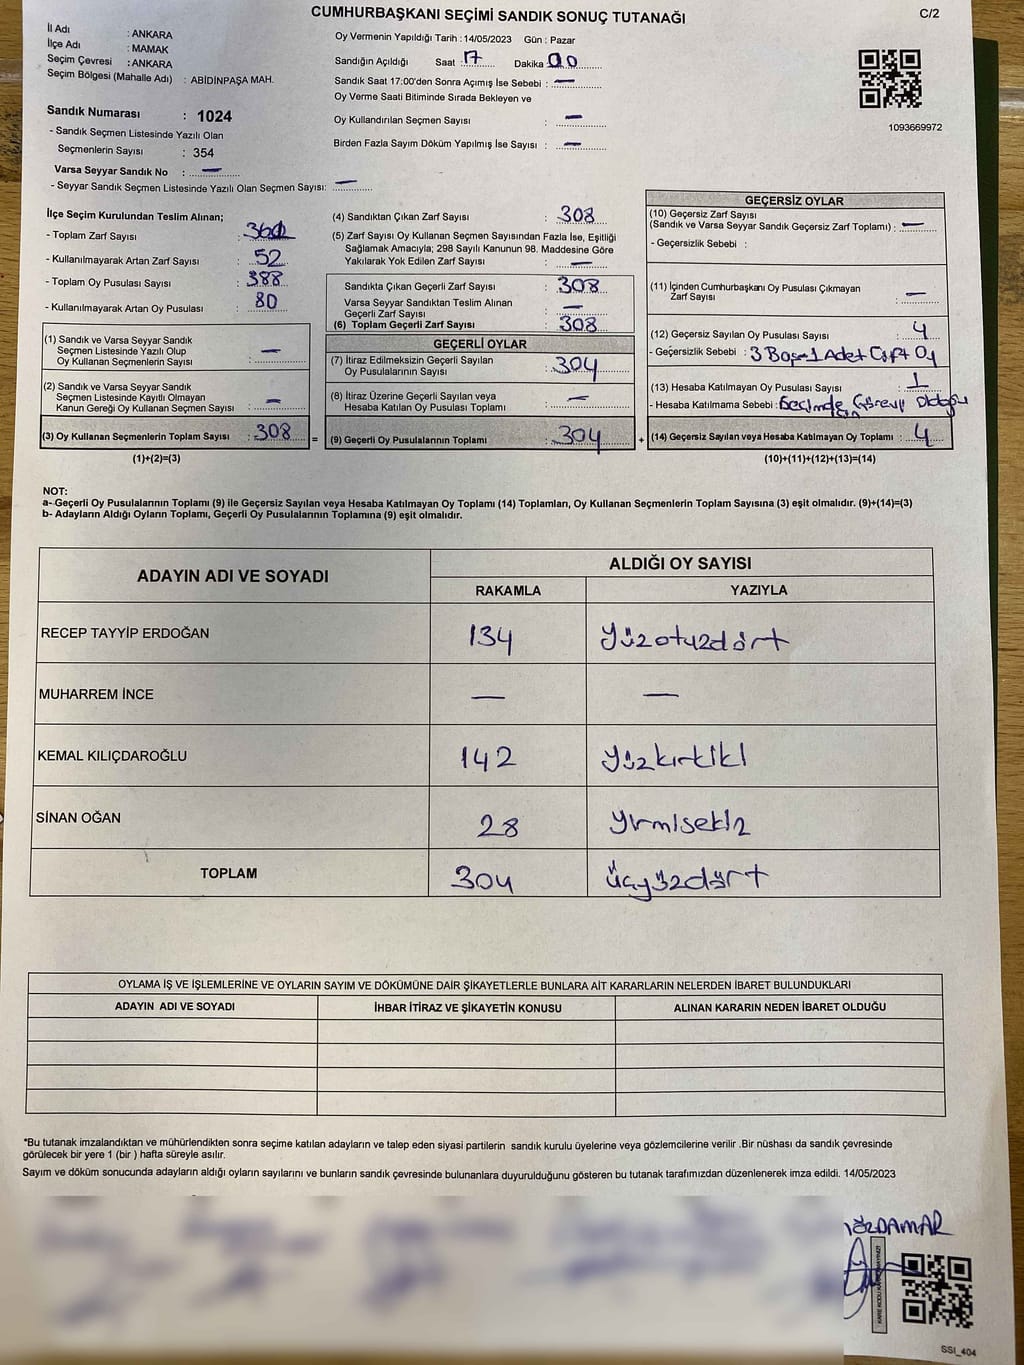 CUMHURBAŞKANI SEÇİMİ SANDIK SONUÇ TUTANAĞI
C/2
İl Adı : ANKARA
İlçe Adı : MAMAK
Seçim Çevresi : ANKARA
Seçim Bölgesi (Mahalle Adı) : ABİDİNPAŞA MAH.
Sandık Numarası : 1024
- Sandık Seçmen Listesinde Yazılı Olan
Seçmenlerin Sayısı : 354
Varsa Seyyar Sandık No : —
- Seyyar Sandık Seçmen Listesinde Yazılı Olan Seçmen Sayısı: —
Oy Vermenin Yapıldığı Tarih : 14/05/2023 Gün : Pazar
Sandığın Açıldığı Saat : 17 Dakika 00
Sandık Saat 17:00'den Sonra Açımış İse Sebebi : —
Oy Verme Saati Bitiminde Sırada Bekleyen ve
Oy Kullandırılan Seçmen Sayısı : —
Birden Fazla Sayım Döküm Yapılmış İse Sayısı : —
1093669972
İlçe Seçim Kurulundan Teslim Alınan;
- Toplam Zarf Sayısı :
- Kullanılmayarak Artan Zarf Sayısı : 52
- Toplam Oy Pusulası Sayısı : 388
- Kullanılmayarak Artan Oy Pusulası : 80
(1) Sandık ve Varsa Seyyar Sandık
Seçmen Listesinde Yazılı Olup
Oy Kullanan Seçmenlerin Sayısı : —
(2) Sandık ve Varsa Seyyar Sandık
Seçmen Listesinde Kayıtlı Olmayan
Kanun Gereği Oy Kullanan Seçmen Sayısı : —
(3) Oy Kullanan Seçmenlerin Toplam Sayısı : 308
(1)+(2)=(3)
=
(4) Sandıktan Çıkan Zarf Sayısı : 308
(5) Zarf Sayısı Oy Kullanan Seçmen Sayısından Fazla İse, Eşitliği
Sağlamak Amacıyla; 298 Sayılı Kanunun 98. Maddesine Göre
Yakılarak Yok Edilen Zarf Sayısı : —
Sandıkta Çıkan Geçerli Zarf Sayısı : 308
Varsa Seyyar Sandıktan Teslim Alınan
Geçerli Zarf Sayısı : —
(6) Toplam Geçerli Zarf Sayısı : 308
GEÇERLİ OYLAR
(7) İtiraz Edilmeksizin Geçerli Sayılan
Oy Pusulalarının Sayısı : 304
(8) İtiraz Üzerine Geçerli Sayılan veya
Hesaba Katılan Oy Pusulası Toplamı : —
(9) Geçerli Oy Pusulalarının Toplamı : 304
+
GEÇERSİZ OYLAR
(10) Geçersiz Zarf Sayısı
(Sandık ve Varsa Seyyar Sandık Geçersiz Zarf Toplamı) : —
- Geçersizlik Sebebi :
(11) İçinden Cumhurbaşkanı Oy Pusulası Çıkmayan
Zarf Sayısı : —
(12) Geçersiz Sayılan Oy Pusulası Sayısı : 4
- Geçersizlik Sebebi : 3 Boş 1 Adet Çift Oy
(13) Hesaba Katılmayan Oy Pusulası Sayısı : 1
- Hesaba Katılmama Sebebi :
(14) Geçersiz Sayılan veya Hesaba Katılmayan Oy Toplamı : 4
(10)+(11)+(12)+(13)=(14)
NOT:
a- Geçerli Oy Pusulalarının Toplamı (9) ile Geçersiz Sayılan veya Hesaba Katılmayan Oy Toplamı (14) Toplamları, Oy Kullanan Seçmenlerin Toplam Sayısına (3) eşit olmalıdır. (9)+(14)=(3)
b- Adayların Aldığı Oyların Toplamı, Geçerli Oy Pusulalarının Toplamına (9) eşit olmalıdır.
ADAYIN ADI VE SOYADI
ALDIĞI OY SAYISI
RAKAMLA YAZIYLA
RECEP TAYYİP ERDOĞAN 134 yüzotuzdört
MUHARREM İNCE — —
KEMAL KILIÇDAROĞLU 142 yüzkırkiki
SİNAN OĞAN 28 yirmisekiz
TOPLAM 304 üçyüzdört
OYLAMA İŞ VE İŞLEMLERİNE VE OYLARIN SAYIM VE DÖKÜMÜNE DAİR ŞİKAYETLERLE BUNLARA AİT KARARLARIN NELERDEN İBARET BULUNDUKLARI
ADAYIN ADI VE SOYADI İHBAR İTİRAZ VE ŞİKAYETİN KONUSU ALINAN KARARIN NEDEN İBARET OLDUĞU
*Bu tutanak imzalandıktan ve mühürlendikten sonra seçime katılan adayların ve talep eden siyasi partilerin sandık kurulu üyelerine veya gözlemcilerine verilir .Bir nüshası da sandık çevresinde
görülecek bir yere 1 (bir ) hafta süreyle asılır.
Sayım ve döküm sonucunda adayların aldığı oyların sayılarını ve bunların sandık çevresinde bulunanlara duyurulduğunu gösteren bu tutanak tarafımızdan düzenlenerek imza edildi. 14/05/2023
ÖZDAMAR
SSI_404